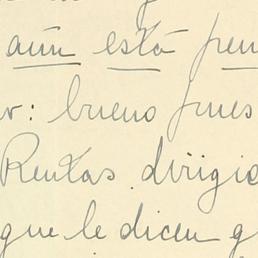 aún está pen
r: bueno pues
Rentas dirigid
que le dicen q